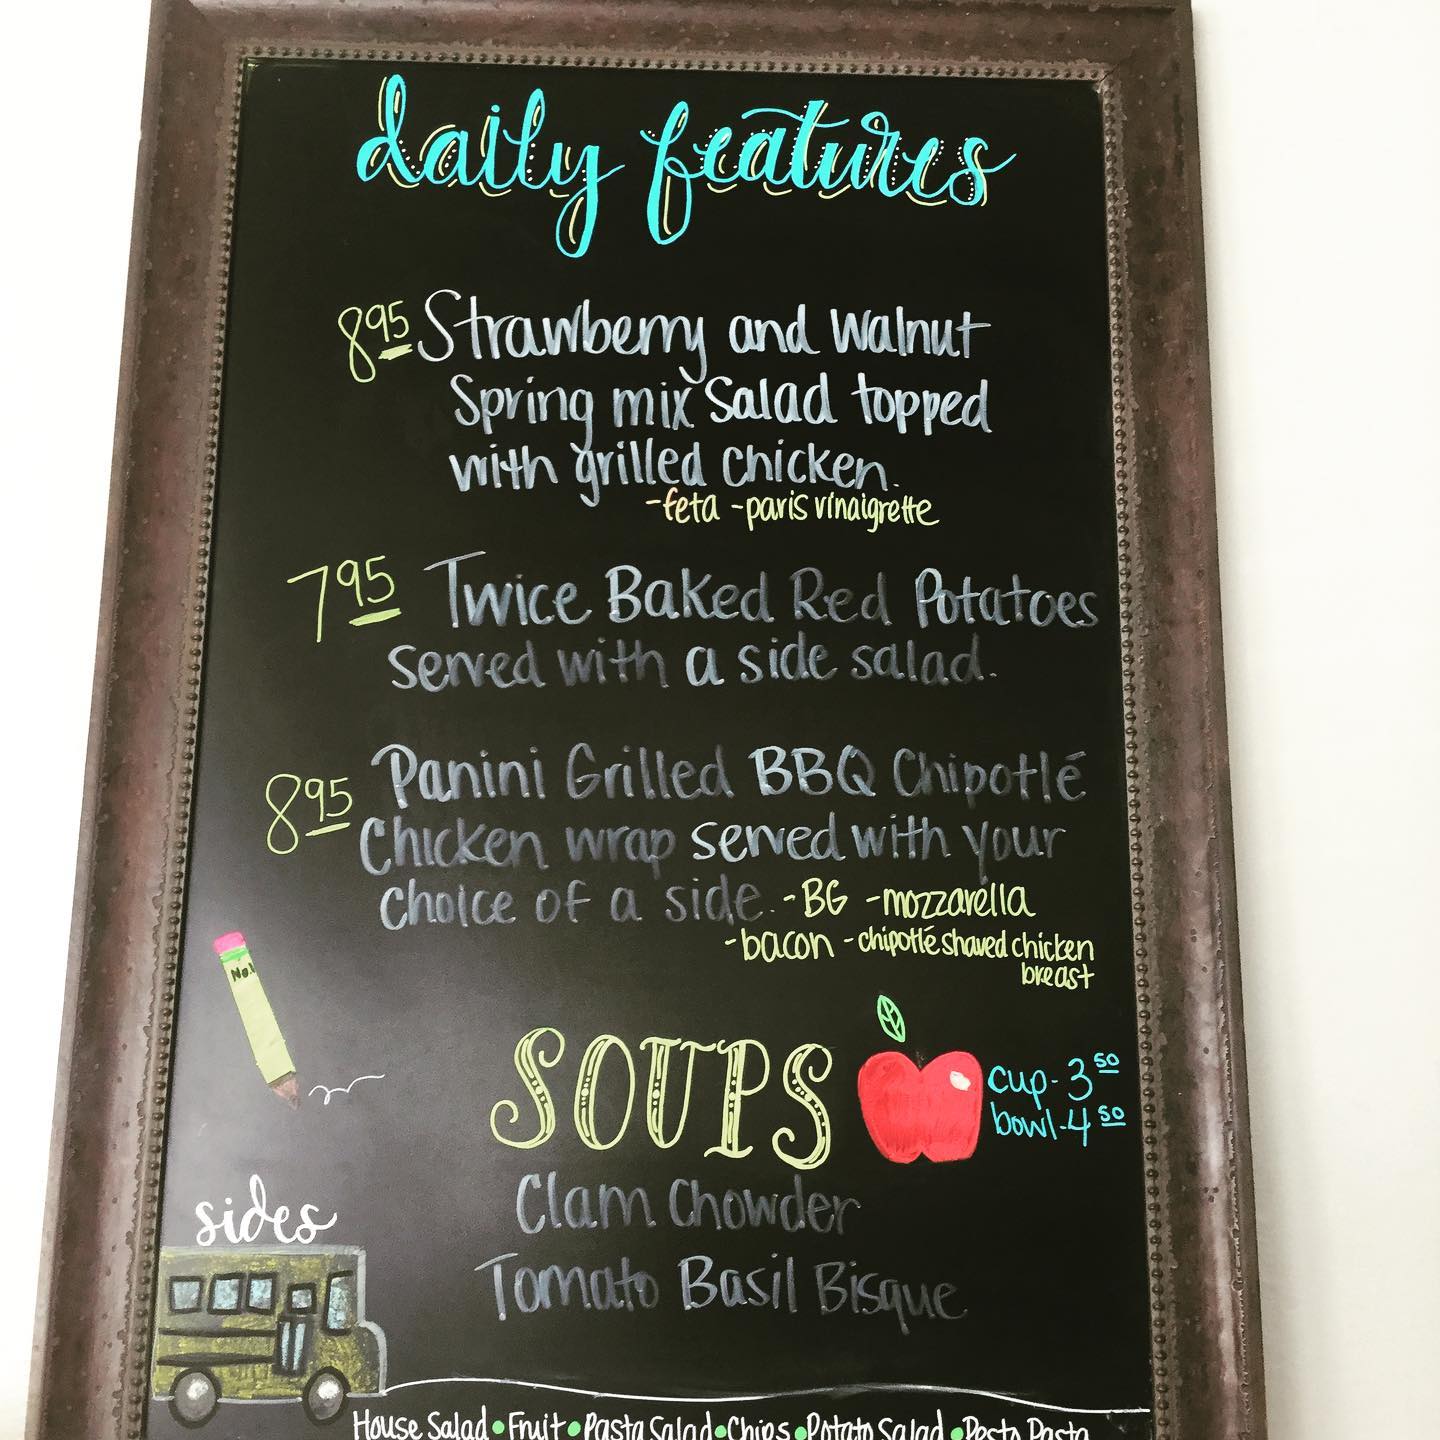 daily features
8.95 Strawberry and Walnut
Spring mix Salad topped
with grilled chicken.
-feta -paris vinaigrette
7.95 Twice Baked Red Potatoes
served with a side salad.
8.95 Panini Grilled BBQ Chipotlé
Chicken wrap served with your
choice of a side. -BG -mozzarella
-bacon -chipotlé shaved chicken
breast
No.1
SOUPS
cup-3.50
bowl-4.50
Clam Chowder
Tomato Basil Bisque
sides
House Salad • Fruit • Pasta Salad • Chips • Potato Salad • Pesto Pasta